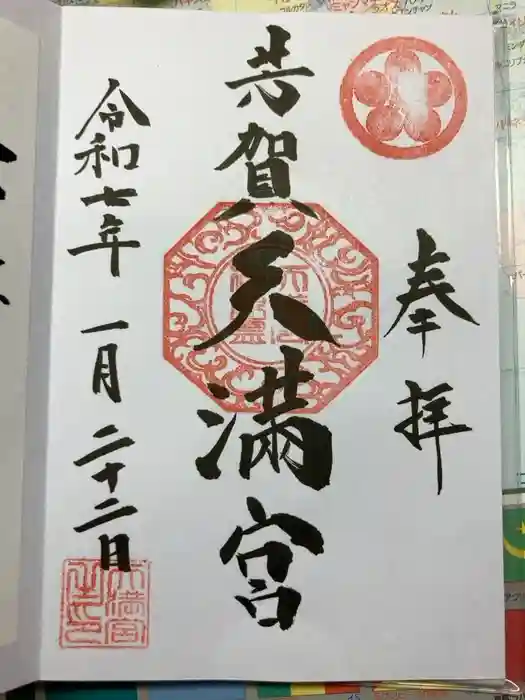 奉拝
芳賀天満宮
令和七年一月二十二日